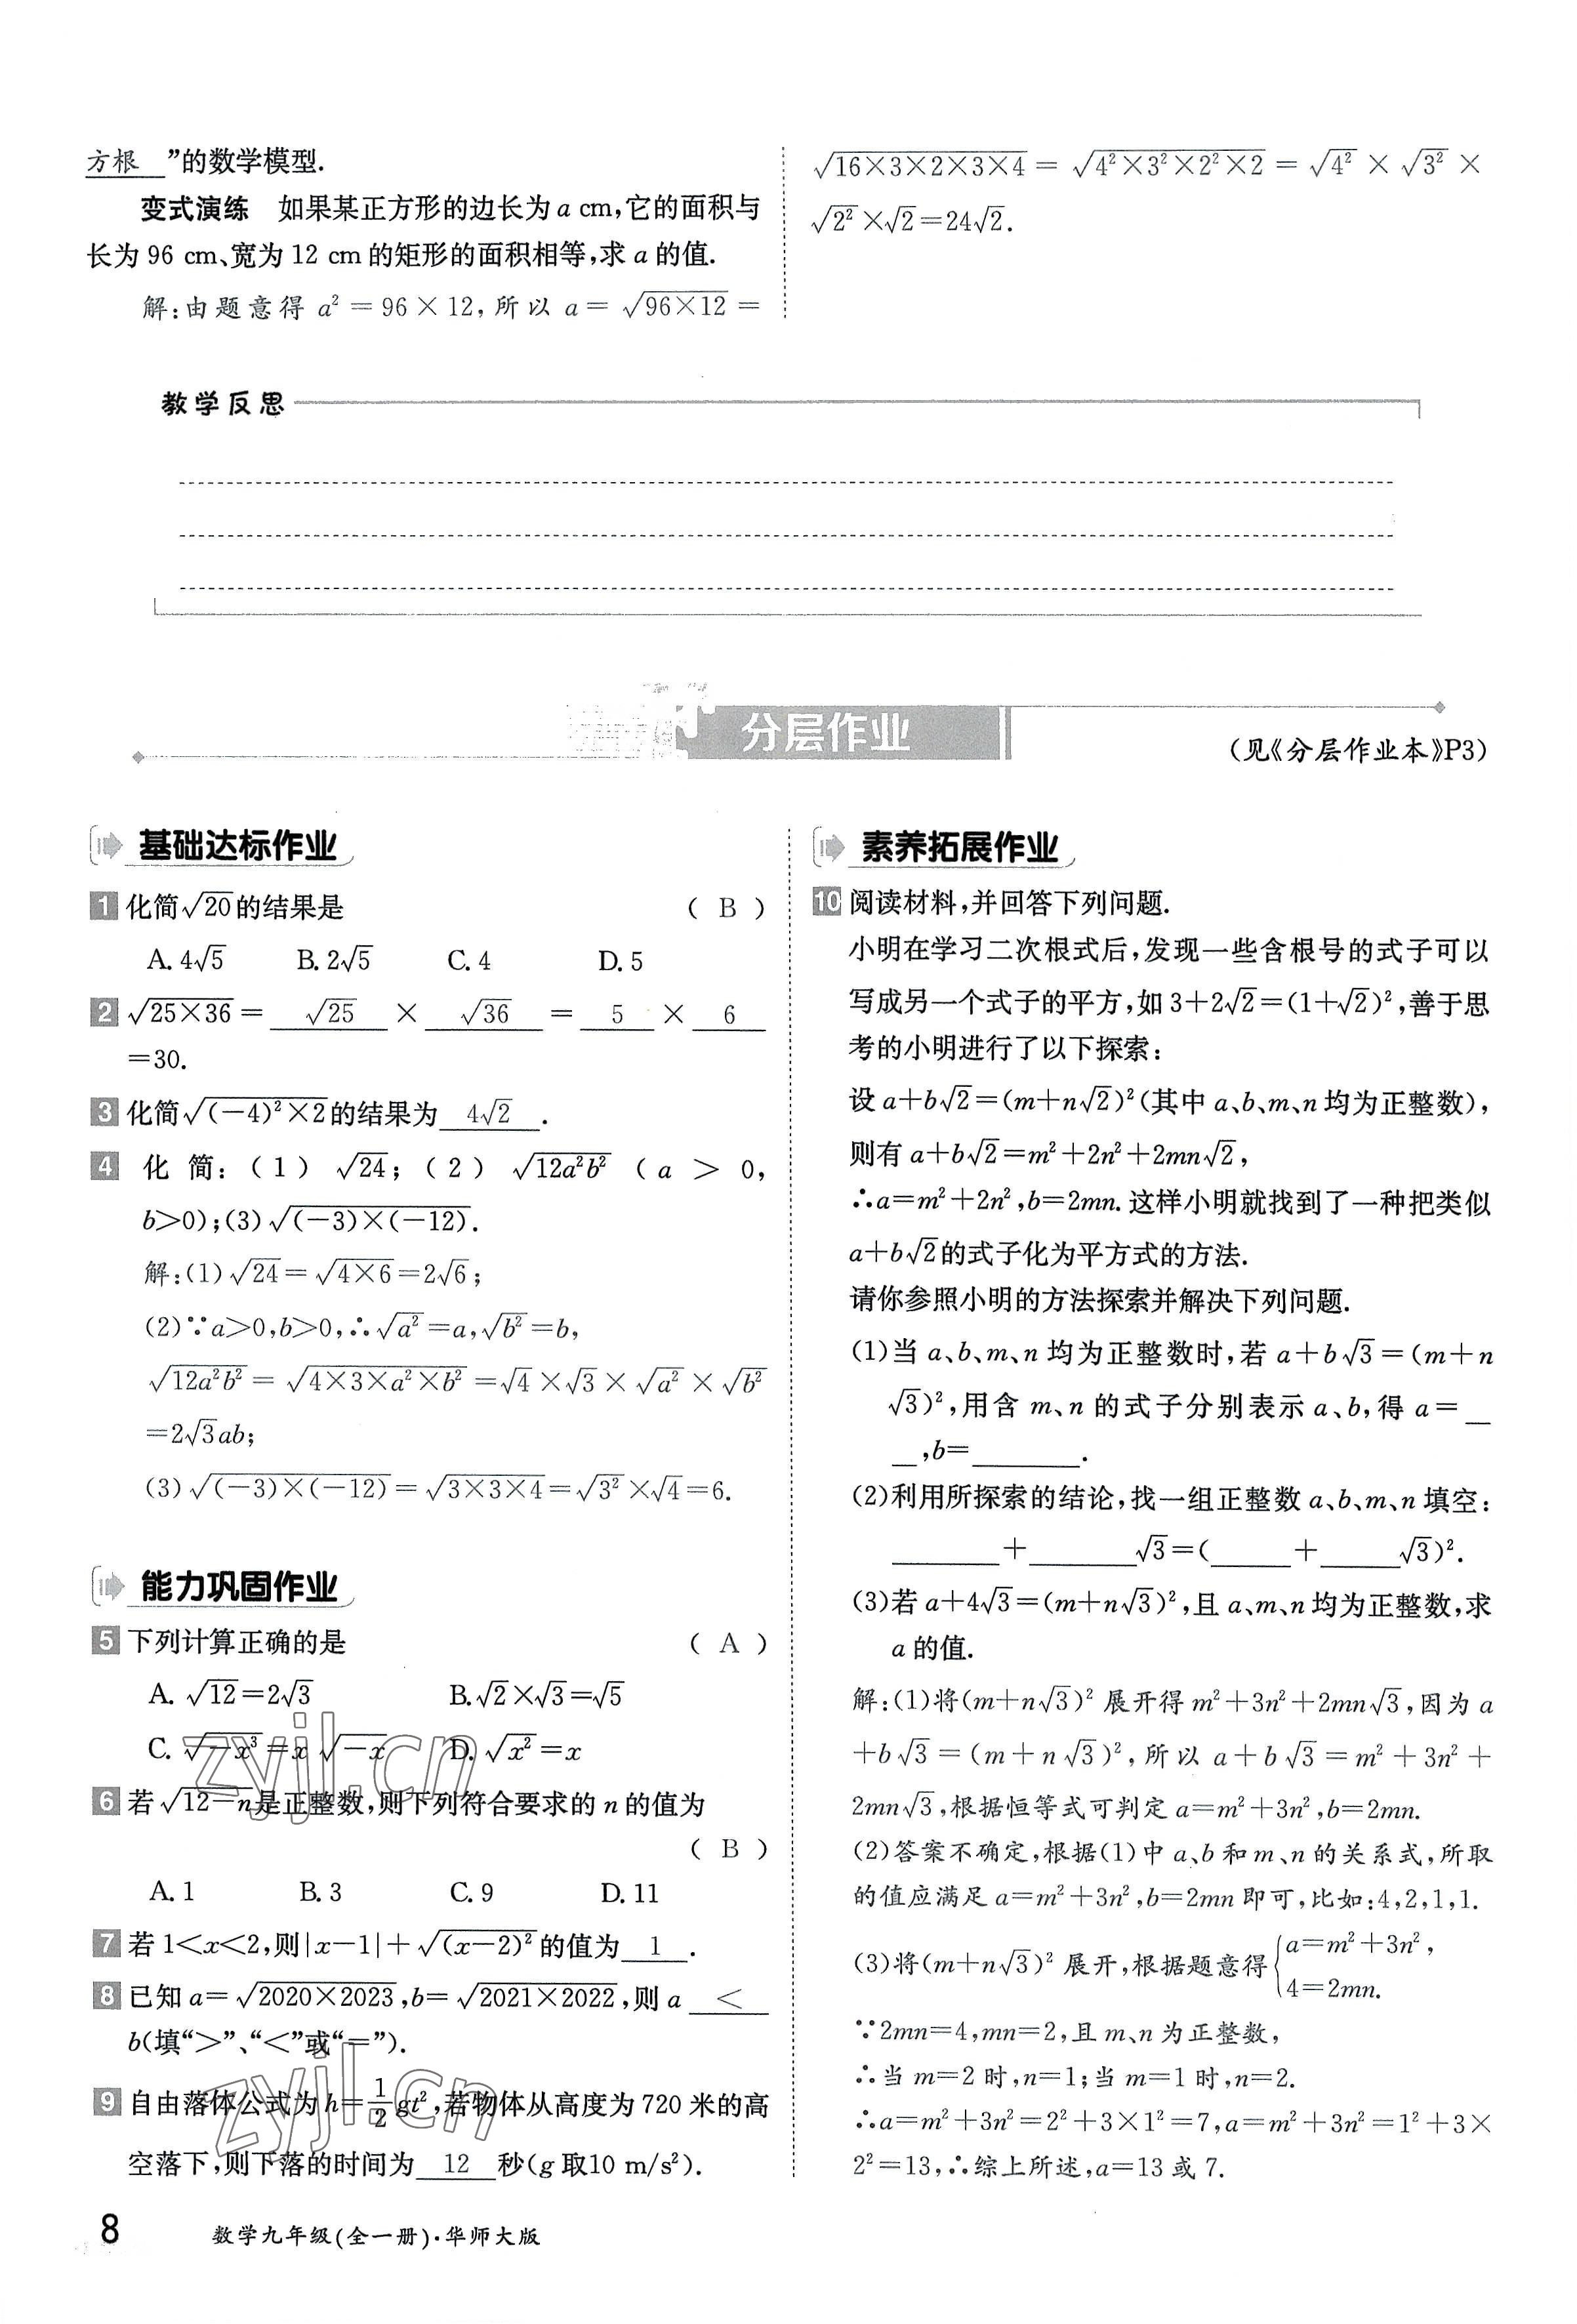 方根 ”的数学模型.
变式演练 如果某正方形的边长为 a cm,它的面积与
长为 96 cm、宽为 12 cm 的矩形的面积相等,求 a 的值.
解:由题意得 a² = 96 × 12, 所以 a = √(96×12) =
√(16×3×2×3×4) = √(4²×3²×2²×2) = √(4²) × √(3²) ×
√(2²) ×√2=24√2.
教学反思
分层作业
(见《分层作业本》P3)
基础达标作业
1 化简√20的结果是 ( B )
A. 4√5 B. 2√5 C. 4 D. 5
2 √(25×36) = √25 × √36 = 5 × 6
=30.
3 化简√((-4)²×2)的结果为 4√2 .
4 化简:(1) √24; (2) √(12a²b²) (a > 0,
b>0);(3)√((-3)×(-12)).
解:(1)√24=√(4×6)=2√6;
(2)∵a>0,b>0,∴√(a²)=a,√(b²)=b,
√(12a²b²) = √(4×3×a²×b²) =√4 ×√3 × √(a²) × √(b²)
=2√3ab;
(3)√((-3)×(-12))=√(3×3×4)=√(3²)×√4=6.
能力巩固作业
5 下列计算正确的是 ( A )
A. √12=2√3 B. √2×√3=√5
C. √(-x³)=x√(-x) D. √(x²)=x
6 若√(12-n)是正整数,则下列符合要求的 n 的值为
( B )
A. 1 B. 3 C. 9 D. 11
7 若 1<x<2,则|x-1|+√((x-2)²)的值为 1 .
8 已知 a=√(2020×2023),b=√(2021×2022),则 a <
b(填“>”、“<”或“=”).
9 自由落体公式为 h=1/2 gt²,若物体从高度为 720 米的高
空落下,则下落的时间为 12 秒(g 取10 m/s²).
素养拓展作业
10 阅读材料,并回答下列问题.
小明在学习二次根式后,发现一些含根号的式子可以
写成另一个式子的平方,如 3+2√2=(1+√2)²,善于思
考的小明进行了以下探索:
设 a+b√2=(m+n√2)²(其中 a、b、m、n 均为正整数),
则有 a+b√2=m²+2n²+2mn√2,
∴a=m²+2n²,b=2mn. 这样小明就找到了一种把类似
a+b√2的式子化为平方式的方法.
请你参照小明的方法探索并解决下列问题.
(1)当 a、b、m、n 均为正整数时,若 a+b√3=(m+n
√3)²,用含 m、n 的式子分别表示 a、b,得 a= _
_ ,b=____.
(2)利用所探索的结论,找一组正整数 a、b、m、n 填空:
____+____√3=(___+___√3)².
(3)若 a+4√3=(m+n√3)²,且 a、m、n 均为正整数,求
a 的值.
解:(1)将(m+n√3)² 展开得 m²+3n²+2mn√3,因为 a
+b√3=(m+n√3)²,所以 a+b√3=m²+3n²+
2mn√3,根据恒等式可判定 a=m²+3n²,b=2mn.
(2)答案不确定,根据(1)中 a、b 和 m、n 的关系式,所取
的值应满足 a=m²+3n²,b=2mn 即可,比如:4,2,1,1.
(3)将(m+n√3)² 展开,根据题意得{a=m²+3n²,
4=2mn.
∵2mn=4,mn=2,且 m、n 为正整数,
∴当 m=2 时,n=1;当 m=1 时,n=2.
∴a=m²+3n²=2²+3×1²=7,a=m²+3n²=1²+3×
2²=13,∴综上所述,a=13 或 7.
zyjl.cn
zyjl.cn
8 数学九年级(全一册)·华师大版